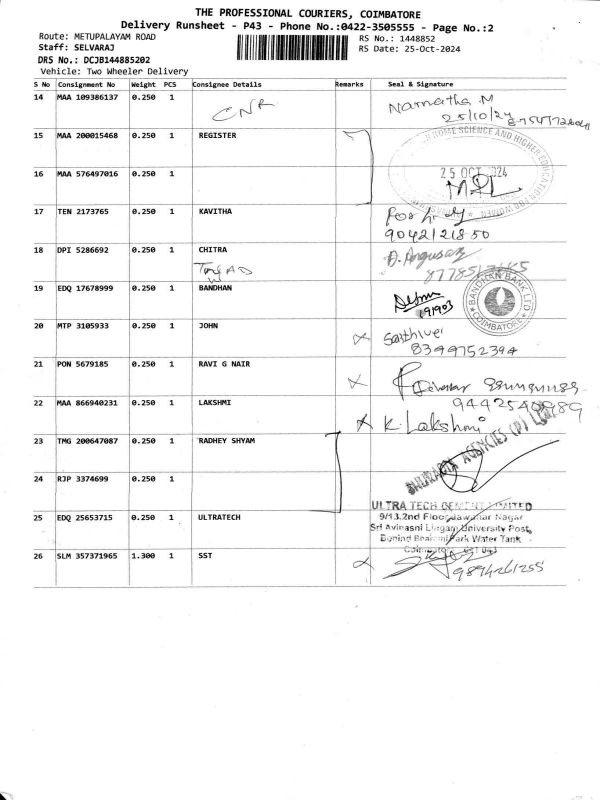 THE PROFESSIONAL COURIERS, COIMBATORE
Delivery Runsheet - P43 - Phone No.:0422-3505555 - Page No.:2
Route: METUPALAYAM ROAD
RS No.: 1448852
Staff: SELVARAJ
RS Date: 25-Oct-2024
DRS No.: DCJB144885202
Vehicle: Two Wheeler Delivery
S No Consignment No Weight PCS Consignee Details Remarks Seal & Signature
14 MAA 109386137 0.250 1 CNR Namratha .M
25/10/24
15 MAA 200015468 0.250 1 REGISTER
HOME SCIENCE AND HIGHER EDUCATION FOR WOMEN
16 MAA 576497016 0.250 1 25 OCT 2024
17 TEN 2173765 0.250 1 KAVITHA
9042121850
18 DPI 5286692 0.250 1 CHITRA
19 EDQ 17678999 0.250 1 BANDHAN
191903
BANDHAN BANK LTD
COIMBATORE
20 MTP 3105933 0.250 1 JOHN
8399752394
21 PON 5679185 0.250 1 RAVI G NAIR
9442540989
22 MAA 866940231 0.250 1 LAKSHMI K. Lakshmi
23 TMG 200647087 0.250 1 RADHEY SHYAM
AGENCIES (P) LTD
24 RJP 3374699 0.250 1
ULTRA TECH CEMENT LIMITED
25 EDQ 25653715 0.250 1 ULTRATECH 9/13,2nd Floor, Jawahar Nagar
Sri Avinasni Lingam University Post,
Park Water Tank
26 SLM 357371965 1.300 1 SST
9894261255